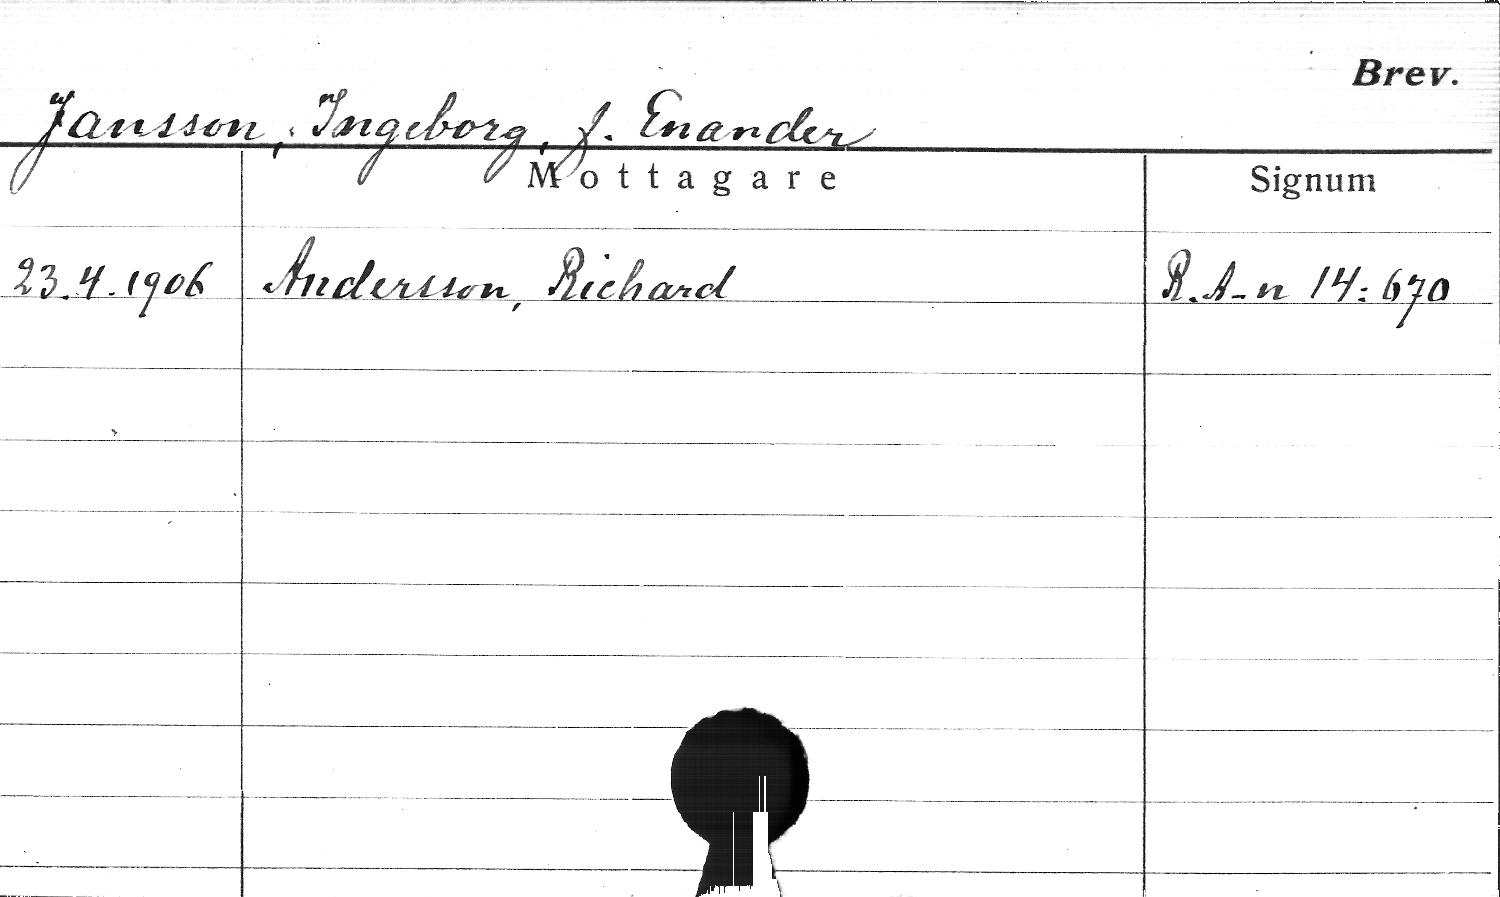 Brev.
Jansson, Ingeborg, f. Enander
Mottagare Signum
23.4.1906 Andersson, Richard R.A-n 14:670